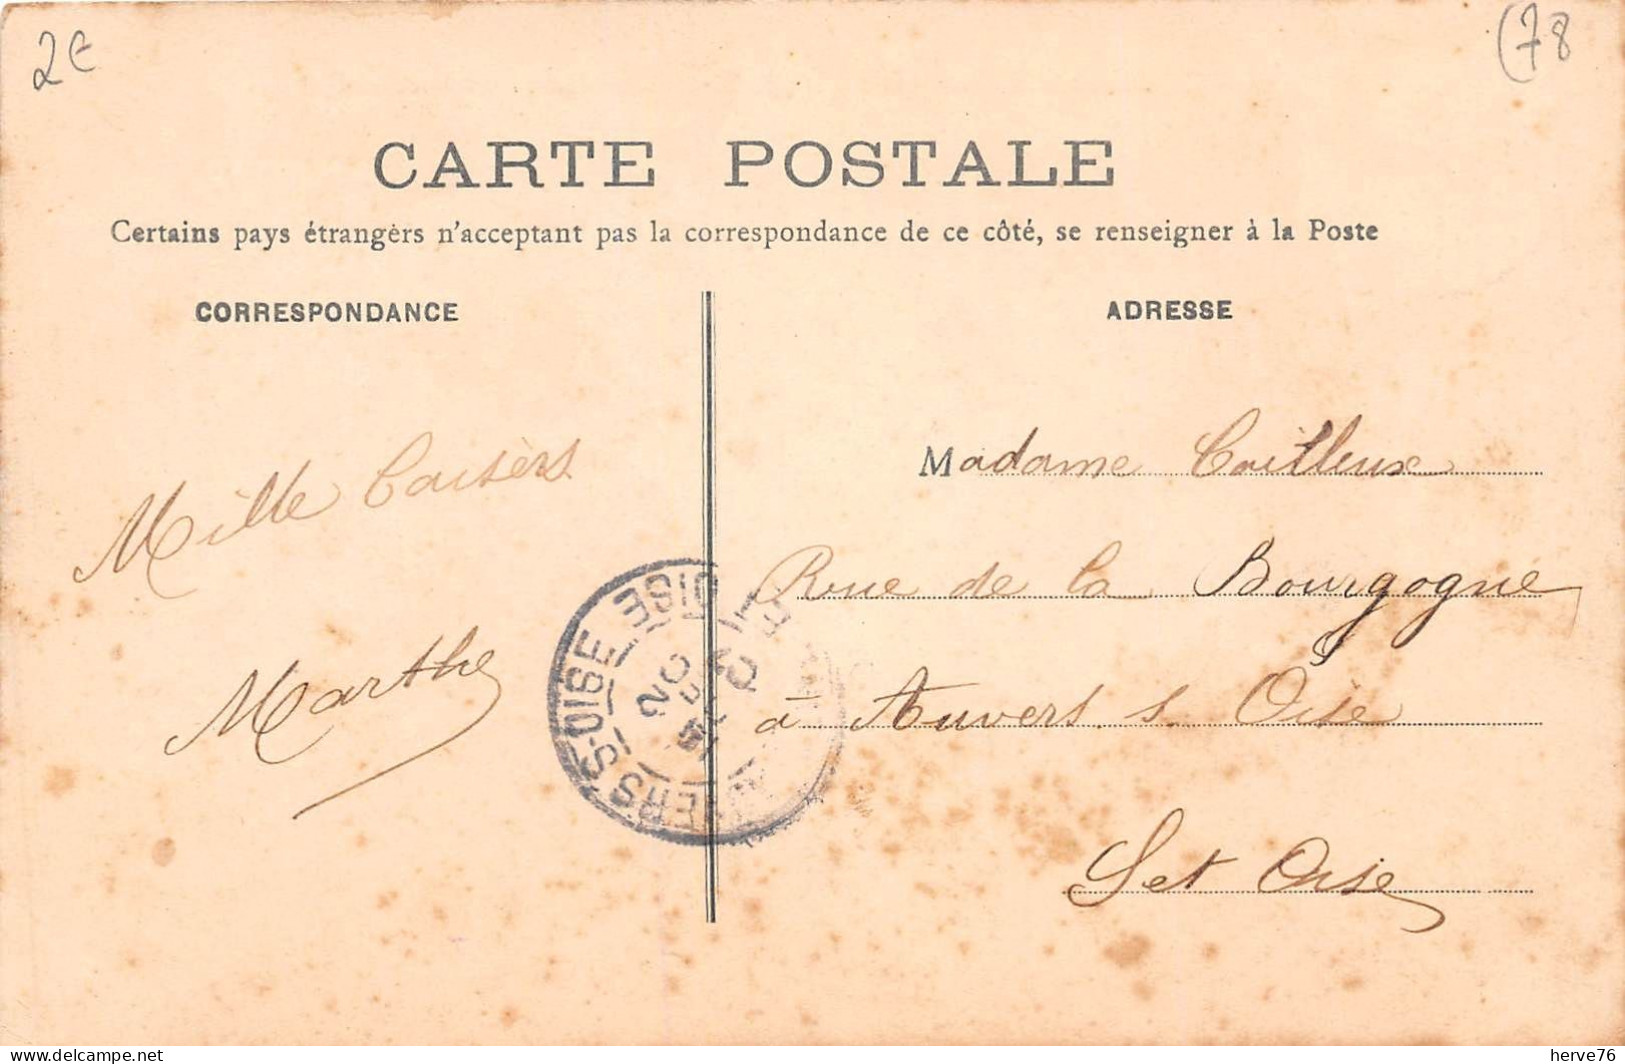 2€
(78
CARTE POSTALE
Certains pays étrangèrs n'acceptant pas la correspondance de ce côté, se renseigner à la Poste
CORRESPONDANCE
ADRESSE
Mille Baisèrs
Marthe
Madame Cailleux
Rue de la Bourgogne
à Auvers s Oise
Set Oise
S-OISE
OISE
20
www.delcampe.net
herve76